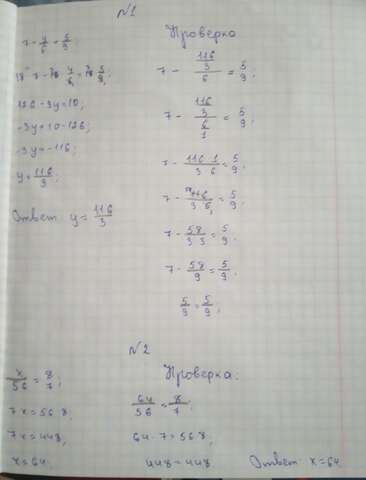 №1
7 - y/6 = 5/9;
18 · 7 - 18 · y/6 = 18 · 5/9;
126 - 3y = 10;
-3y = 10 - 126;
-3y = -116;
y = 116/3;
Ответ y = 116/3
Проверка
7 - 116/3/6 = 5/9;
7 - 116/3/6/1 = 5/9;
7 - 116 1/3 6 = 5/9;
7 - 116/3 6 = 5/9;
7 - 58/3 3 = 5/9;
7 - 58/9 = 5/9;
5/9 = 5/9;
№2
x/56 = 8/7;
7x = 56 8;
7x = 448;
x = 64.
Проверка:
64/56 = 8/7;
64 · 7 = 56 8;
448 = 448.
Ответ: x = 64.